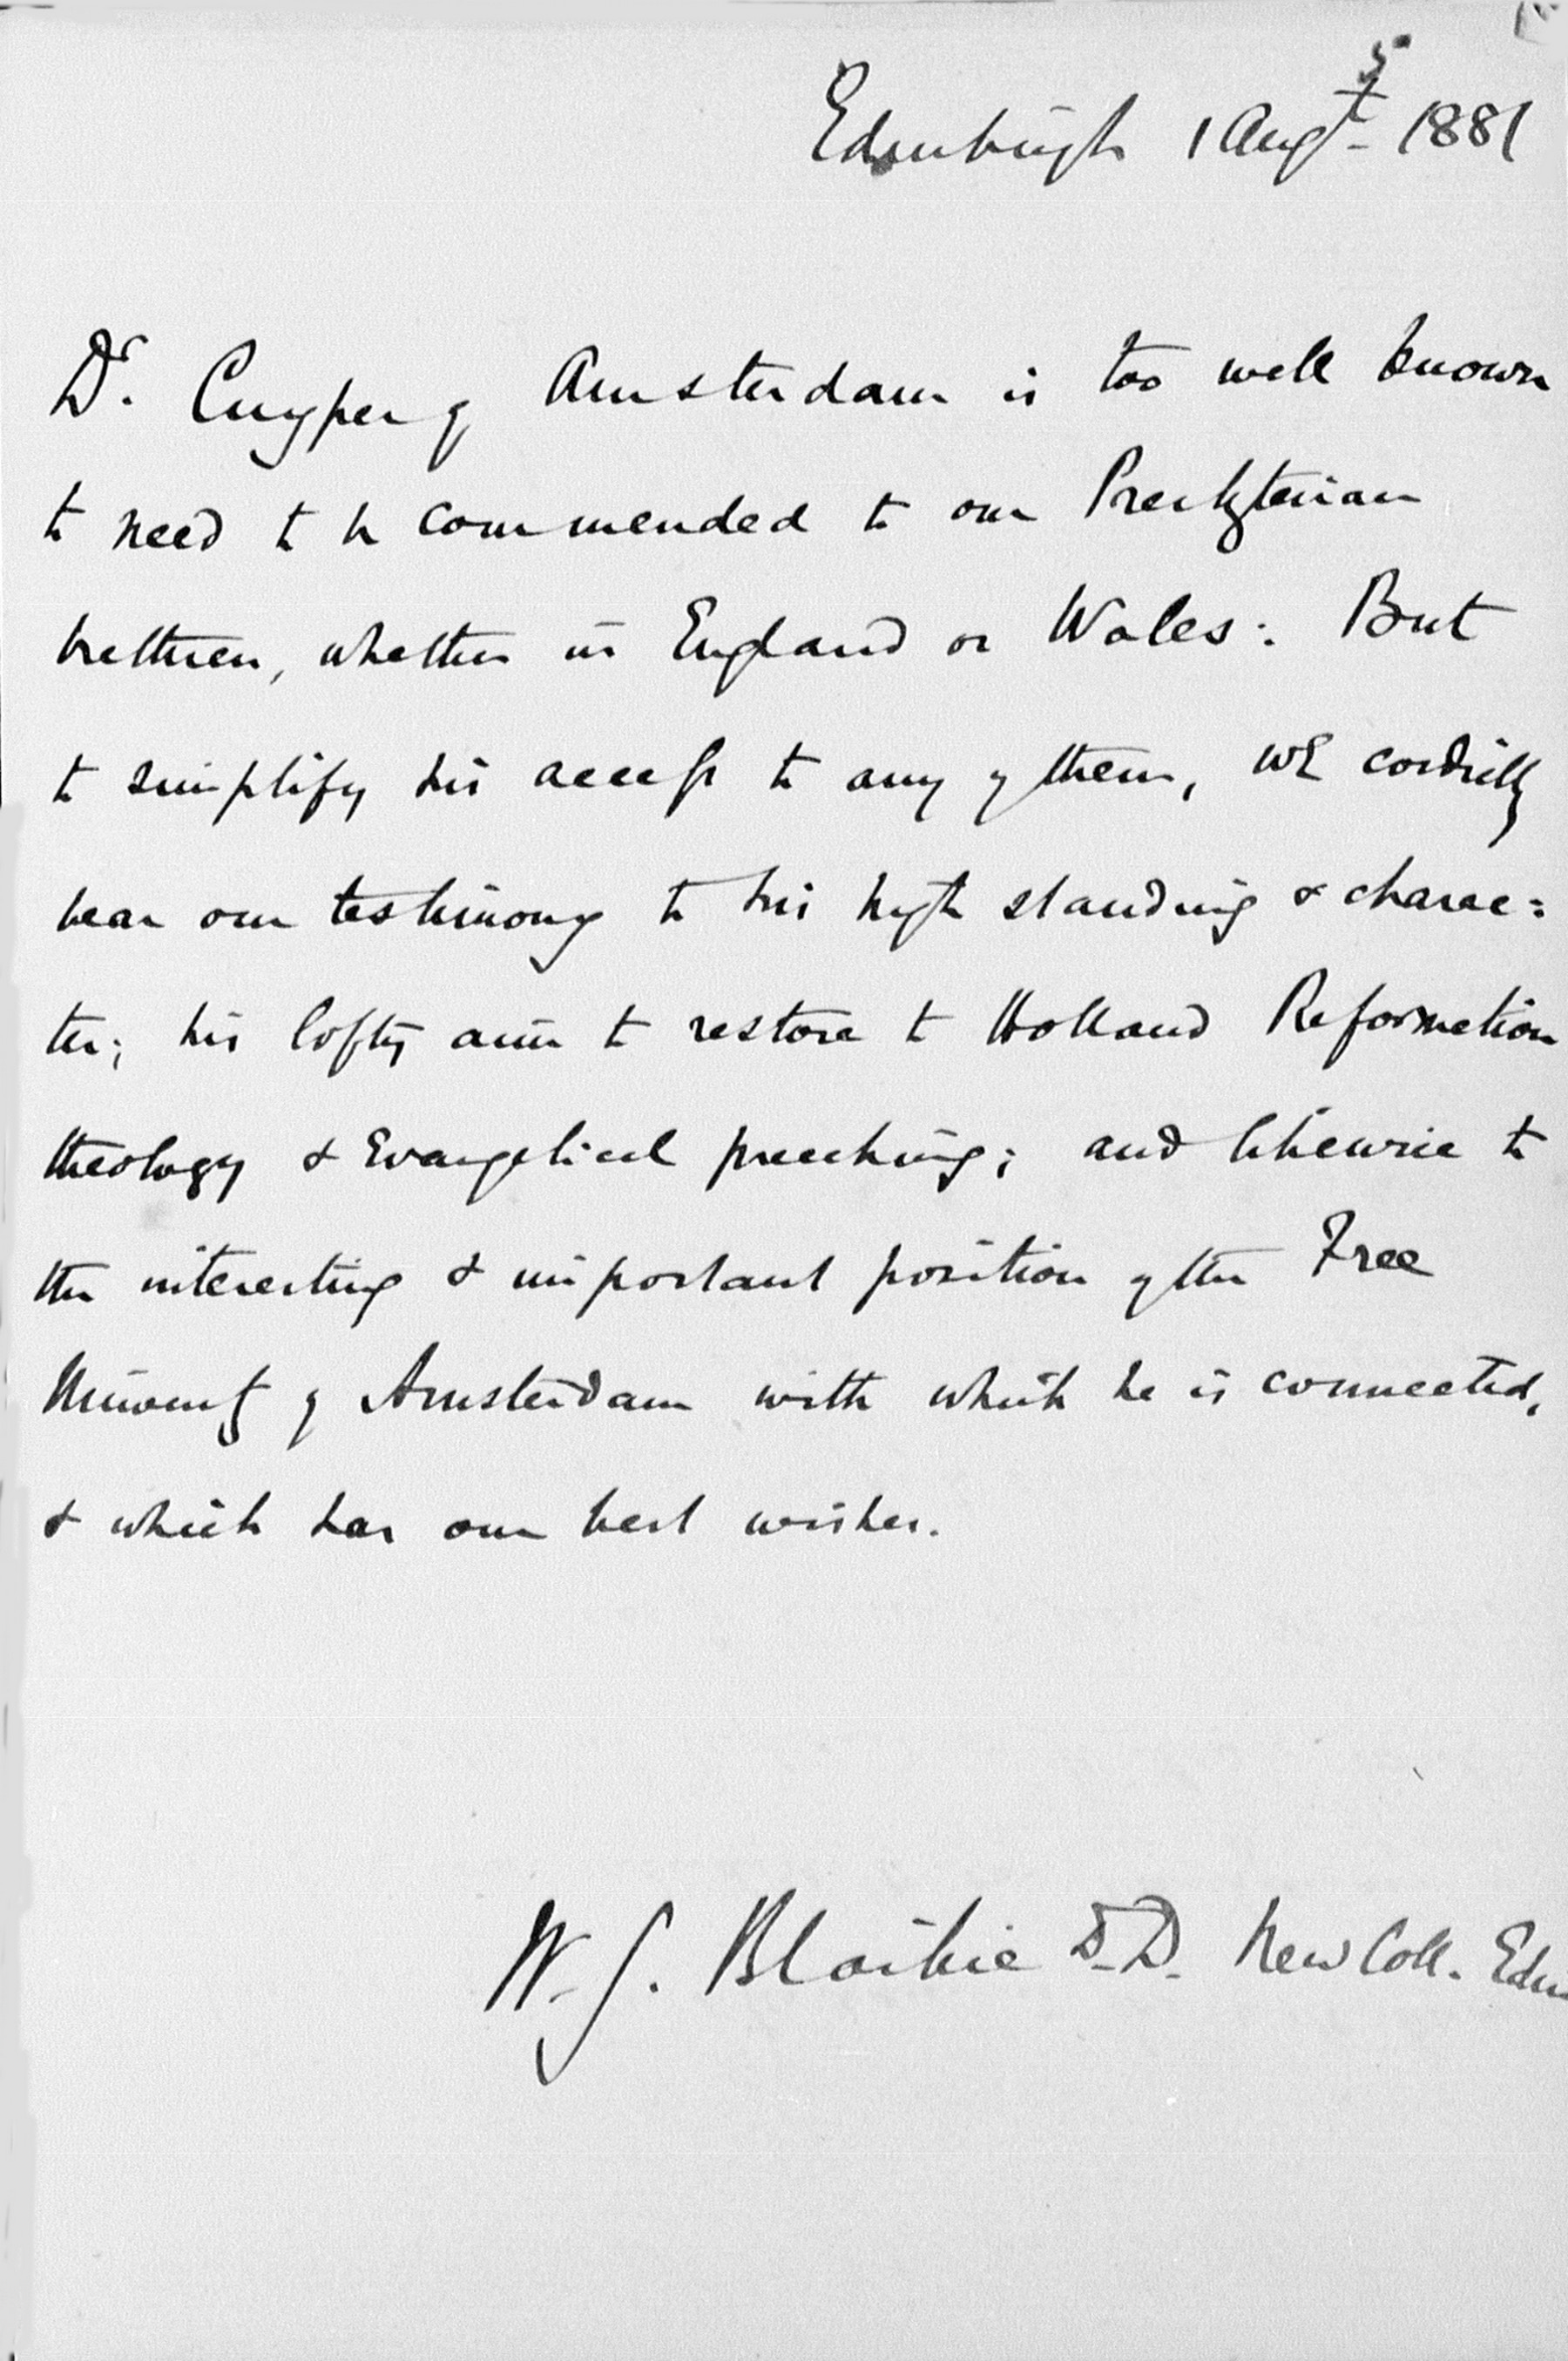 5
Edinburgh 1 Augt 1881
Dr. Cuyper of Amsterdam is too well known
to need to be commended to our Presbyterian
brethren, whether in England or Wales: But
to simplify his access to any of them, we cordially
bear our testimony to his high standing & charac=
ter; his lofty aim to restore to Holland Reformation
theology & Evangelical preaching; and likewise to
the interesting & important position of the Free
University of Amsterdam with which he is connected,
& which has our best wishes.
W. G. Blaikie D.D. New Coll. Edin